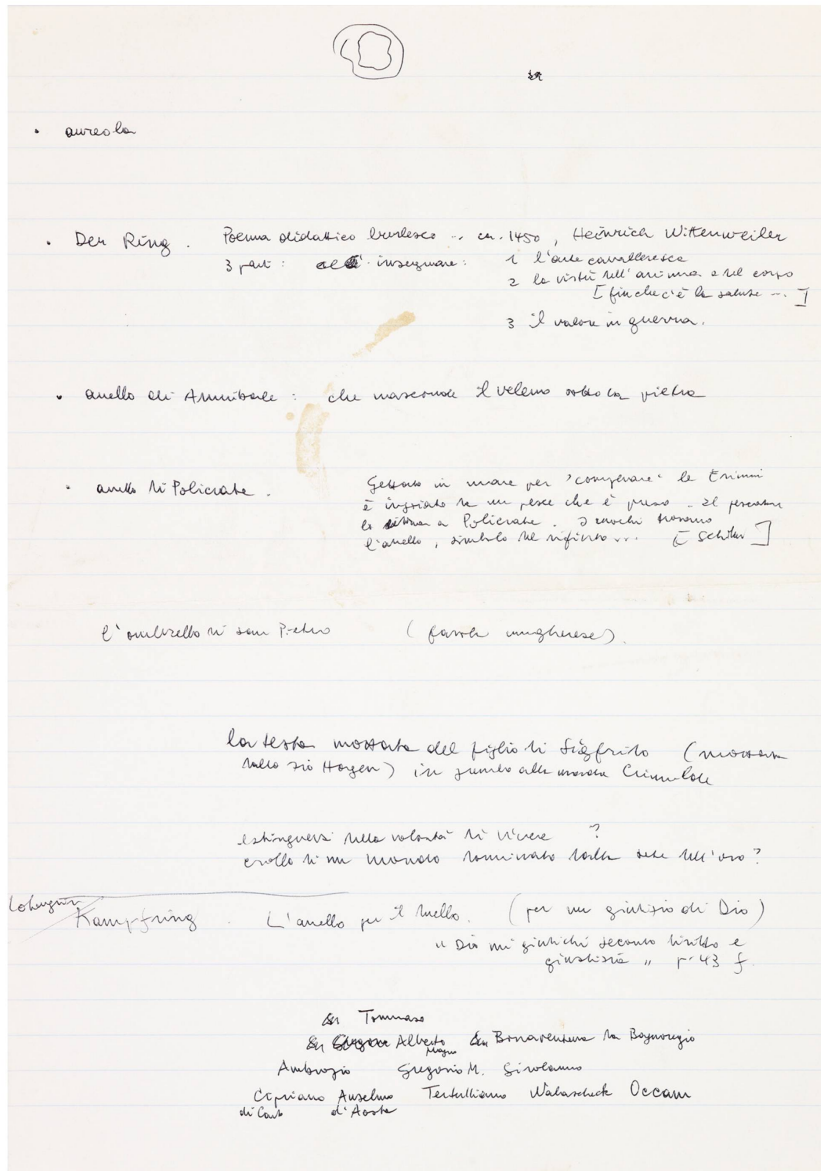 • aureola
• Der Ring. Poema didattico burlesco ... ca. 1450, Heinrich Wittenweiler
3 parti: insegnare: 1 l'arte cavalleresca
2 la virtù dell'anima e del corpo
[finche c'è la salute ... ]
3 il valore in guerra.
• anello di Annibale: che nasconde il veleno sotto la pietra
• anello di Policrate. Gettato in mare per 'comperare' le Erinni
è ingoiato da un pesce che è preso. Il pescatore
lo a Policrate. I cuochi trovano
l'anello, simbolo del rifiuto ... [Schiller]
l'ombrello di san Pietro (favola ungherese).
la testa mozzata del figlio di Sigfrido (mozzata
dallo zio Hagen) in grembo alla madre Crimilde
estinguersi della volontà di vivere ?
crollo di un mondo dominato dalla sete dell'oro?
Lohengrin
Kampfring. L'anello per il duello. (per un giudizio di Dio)
" Dio mi giudichi secondo diritto e
giustizia " p. 43 f.
San Tommaso
San Alberto Magno San Bonaventura da Bagnoregio
Ambrogio Gregorio M. Girolamo
Cipriano Anselmo Tertulliano Occam
di Cart d'Aosta